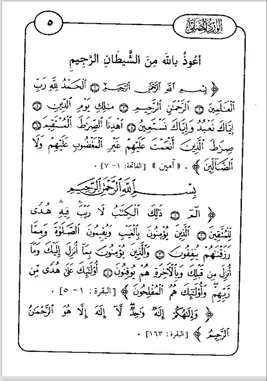 الورد المصطفى
٥
أعوذ بالله من الشيطان الرجيم
﴿ بِسْمِ اللَّهِ الرَّحْمَٰنِ الرَّحِيمِ ۝ الْحَمْدُ لِلَّهِ رَبِّ
الْعَالَمِينَ ۝ الرَّحْمَٰنِ الرَّحِيمِ ۝ مَالِكِ يَوْمِ الدِّينِ ۝
إِيَّاكَ نَعْبُدُ وَإِيَّاكَ نَسْتَعِينُ ۝ اهْدِنَا الصِّرَاطَ الْمُسْتَقِيمَ ۝
صِرَاطَ الَّذِينَ أَنْعَمْتَ عَلَيْهِمْ غَيْرِ الْمَغْضُوبِ عَلَيْهِمْ وَلَا
الضَّالِّينَ ﴾ . « آمين » [الفاتحة: ١ - ٧] .
بِسْمِ اللَّهِ الرَّحْمَٰنِ الرَّحِيمِ
﴿ الم ۝ ذَٰلِكَ الْكِتَابُ لَا رَيْبَ فِيهِ هُدًى
لِلْمُتَّقِينَ ۝ الَّذِينَ يُؤْمِنُونَ بِالْغَيْبِ وَيُقِيمُونَ الصَّلَاةَ وَمِمَّا
رَزَقْنَاهُمْ يُنفِقُونَ ۝ وَالَّذِينَ يُؤْمِنُونَ بِمَا أُنزِلَ إِلَيْكَ وَمَا
أُنزِلَ مِن قَبْلِكَ وَبِالْآخِرَةِ هُمْ يُوقِنُونَ ۝ أُولَٰئِكَ عَلَىٰ هُدًى مِّن
رَّبِّهِمْ وَأُولَٰئِكَ هُمُ الْمُفْلِحُونَ ﴾ [البقرة: ١ - ٥] .
﴿ وَإِلَٰهُكُمْ إِلَٰهٌ وَاحِدٌ لَّا إِلَٰهَ إِلَّا هُوَ الرَّحْمَٰنُ
الرَّحِيمُ ﴾ [البقرة: ١٦٣] .